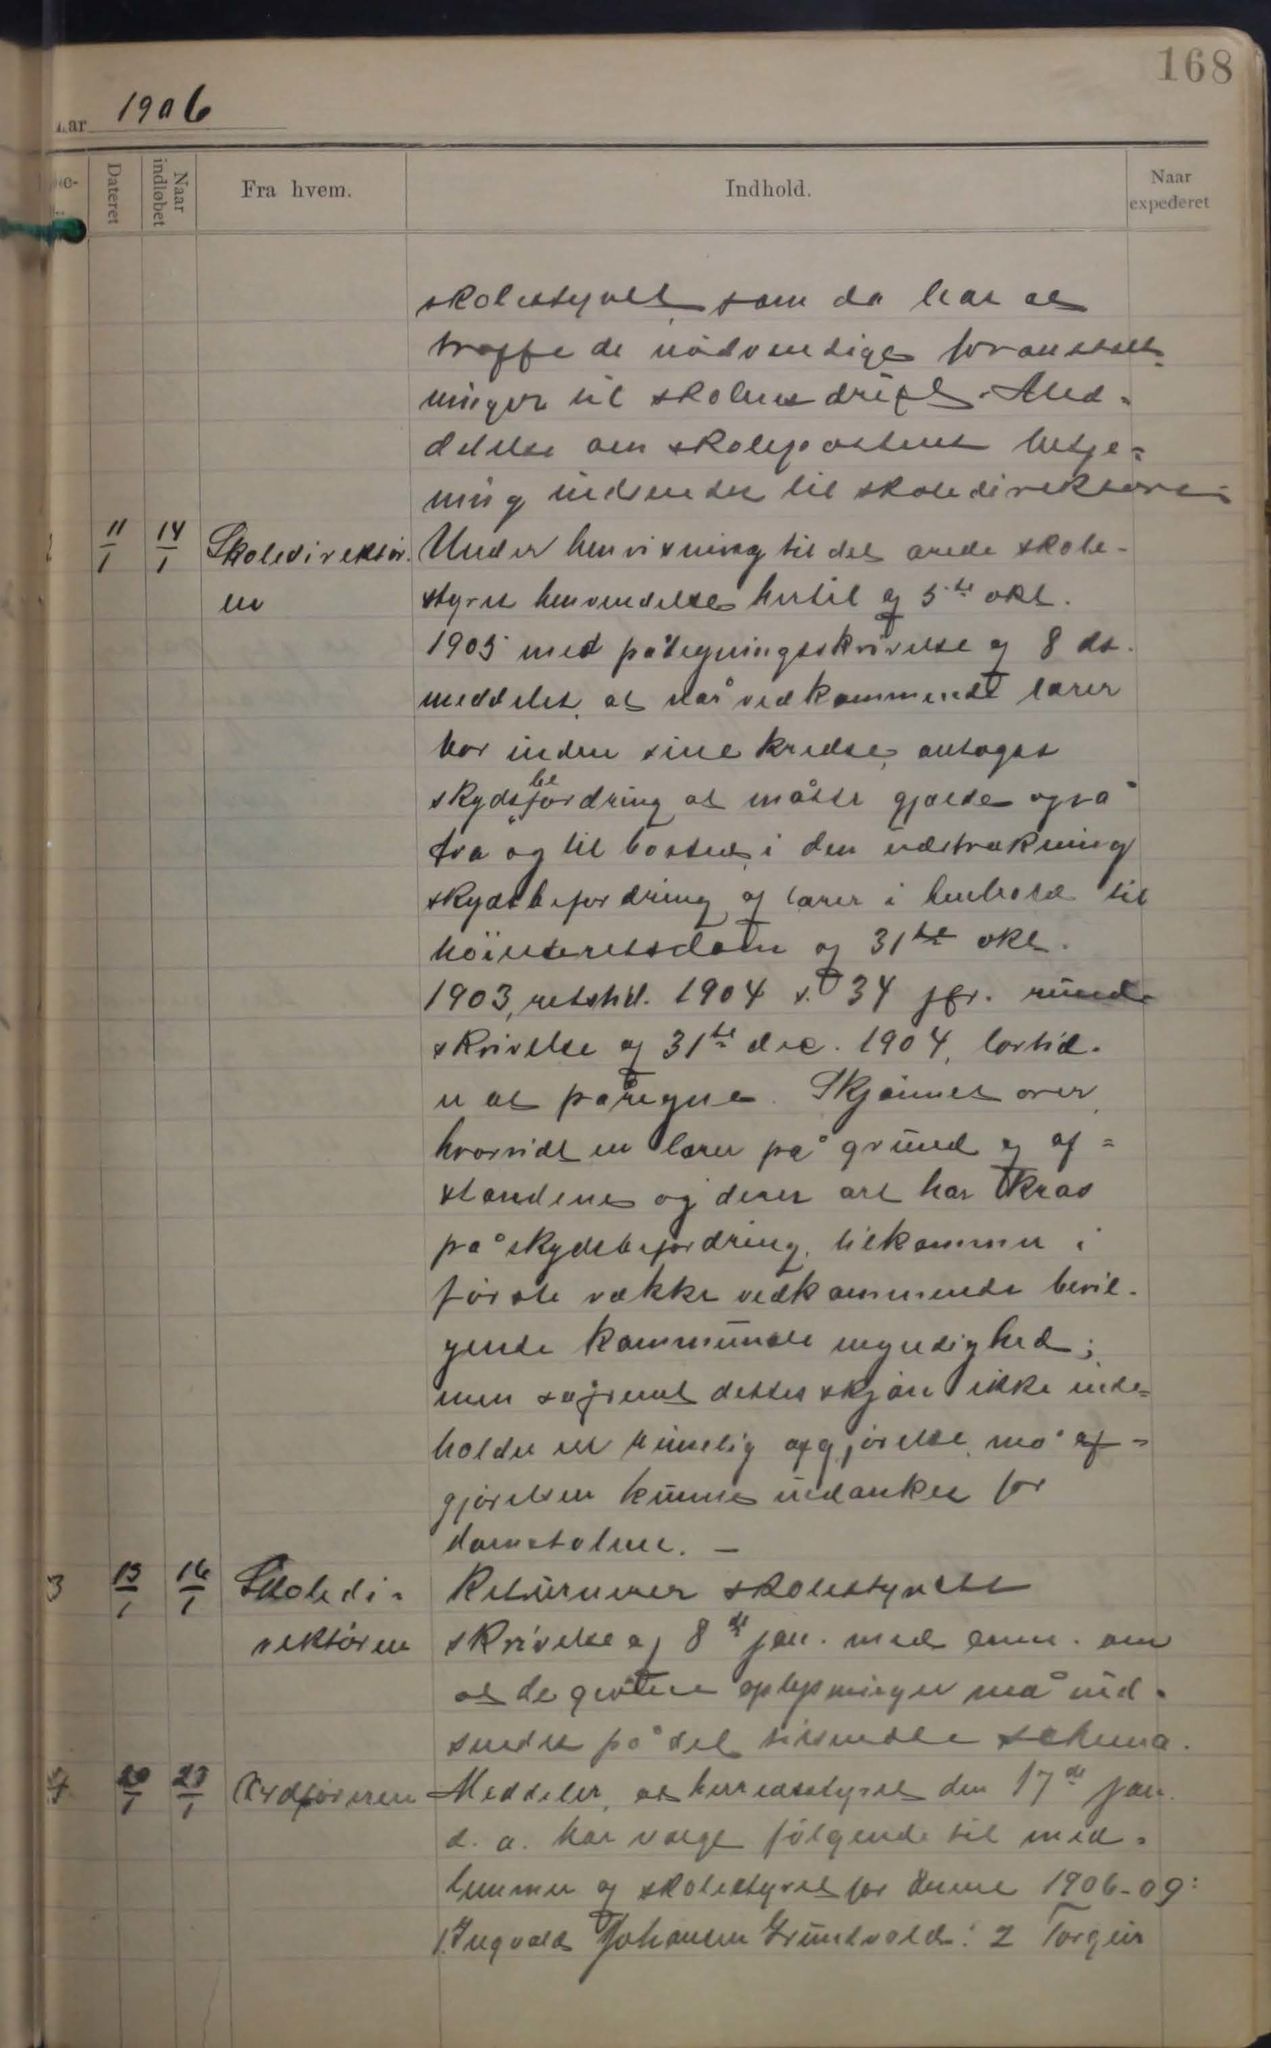 168
Aar 1906
Dateret
Naar indløbet
Fra hvem.
Indhold.
Naar expederet
skolestyret, som da har at
træffe de nødvendige foranstalt-
ninger til skolens drift. Med-
delelse om skolepostens betje-
ning indsendes til skoledirektøren
11/1 14/1 Skoledirektør- Under henvisning til det ærede skole-
en styres henvendelse hertil af 5te okt.
1905 med påtegningsskrivelse af 8 ds.
meddeles, at når vedkommende lærer
bor inden sine kredse, antages
skydsbefordring at måtte gjælde også
fra og til bosted, i den udstrækning
skydsbefordring af lærer i henhold til
høiesteretsdom af 31te okt.
1903, retstid. 1904 s. 34 jfr. rund-
skrivelse af 31te dec. 1904,
er at påregne. Skjønnet over,
hvorvidt en lærer på grund af af-
standene og deres art har krav
på skydsbefordring, tilkommer i
første række vedkommende bevil-
gende kommunale myndighed;
men såfremt dettes skjøn ikke inde-
holder en rimelig afgjørelse, må af-
gjørelsen kunne indankes for
domstolene. –
3 15/1 16/1 Skoledi- Returnerer skolestyrets
rektøren skrivelse af 8de jan. med anm. om
at de givne oplysninger må ind-
sendes på det tilsendte schema.
4 20/1 23/1 Ordføreren Meddeler, at herredsstyret den 17de jan.
d. a. har valgt følgende til med-
lemmer af skolestyret for årene 1906-09:
1. Ingvald Johansen Grundvold: 2 Torgeir